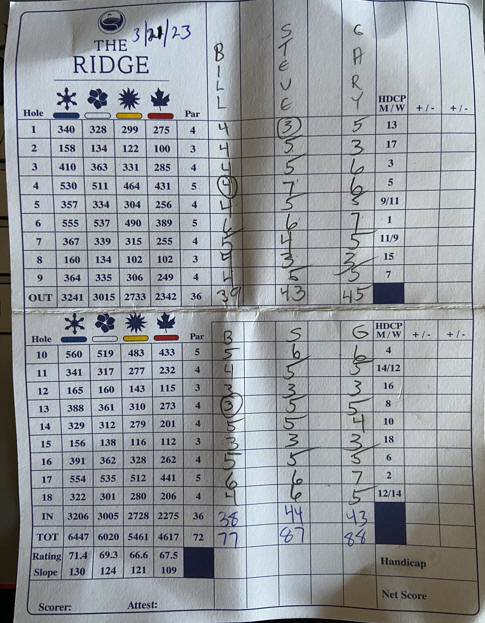 3/21/23
THE
RIDGE
BILL STEVE GARY
Hole Par HDCP M/W +/- +/-
1 340 328 299 275 4 4 3 5 13
2 158 134 122 100 3 4 5 3 17
3 410 363 331 285 4 4 5 6 3
4 530 511 464 431 5 4 7 6 5
5 357 334 304 256 4 4 5 5 9/11
6 555 537 490 389 5 6 7 1
7 367 339 315 255 4 5 4 5 11/9
8 160 134 102 102 3 3 3 15
9 364 335 306 249 4 4 5 5 7
OUT 3241 3015 2733 2342 36 39 43 45
Hole Par B S G HDCP M/W +/- +/-
10 560 519 483 433 5 5 6 6 4
11 341 317 277 232 4 4 5 5 14/12
12 165 160 143 115 3 3 3 3 16
13 388 361 310 273 4 3 5 5 8
14 329 312 279 201 4 5 5 4 10
15 156 138 116 112 3 3 3 3 18
16 391 362 328 262 4 5 5 5 6
17 554 535 512 441 5 6 6 7 2
18 322 301 280 206 4 4 6 5 12/14
IN 3206 3005 2728 2275 36 38 44 43
TOT 6447 6020 5461 4617 72 77 87 88
Rating 71.4 69.3 66.6 67.5 Handicap
Slope 130 124 121 109
Net Score
Scorer: Attest: